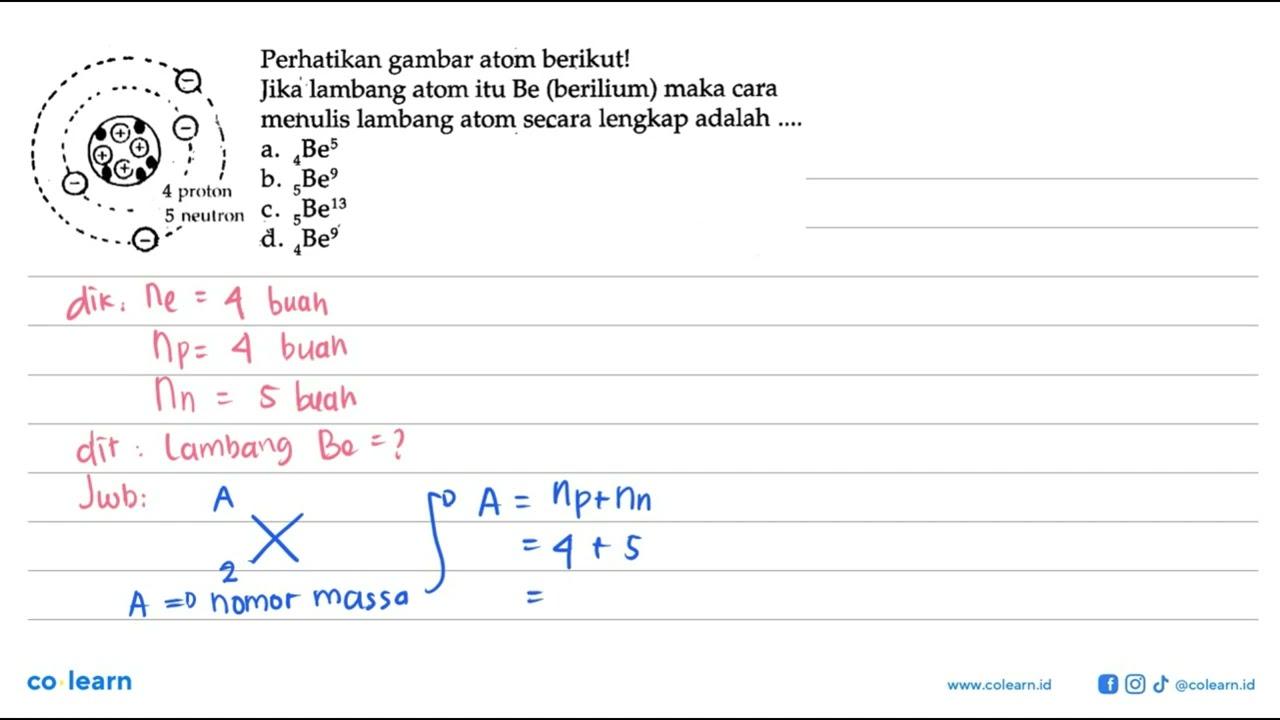 Perhatikan gambar atom berikut!
Jika lambang atom itu Be (berilium) maka cara
menulis lambang atom secara lengkap adalah ....
a. ₄Be⁵
b. ₅Be⁹
c. ₅Be¹³
d. ₄Be⁹
4 proton
5 neutron
dik: ne = 4 buah
np = 4 buah
nn = 5 buah
dit : Lambang Be = ?
Jwb:
A
X
2
A => nomor massa
A = np+nn
= 4 + 5
=
co learn
www.colearn.id
@colearn.id